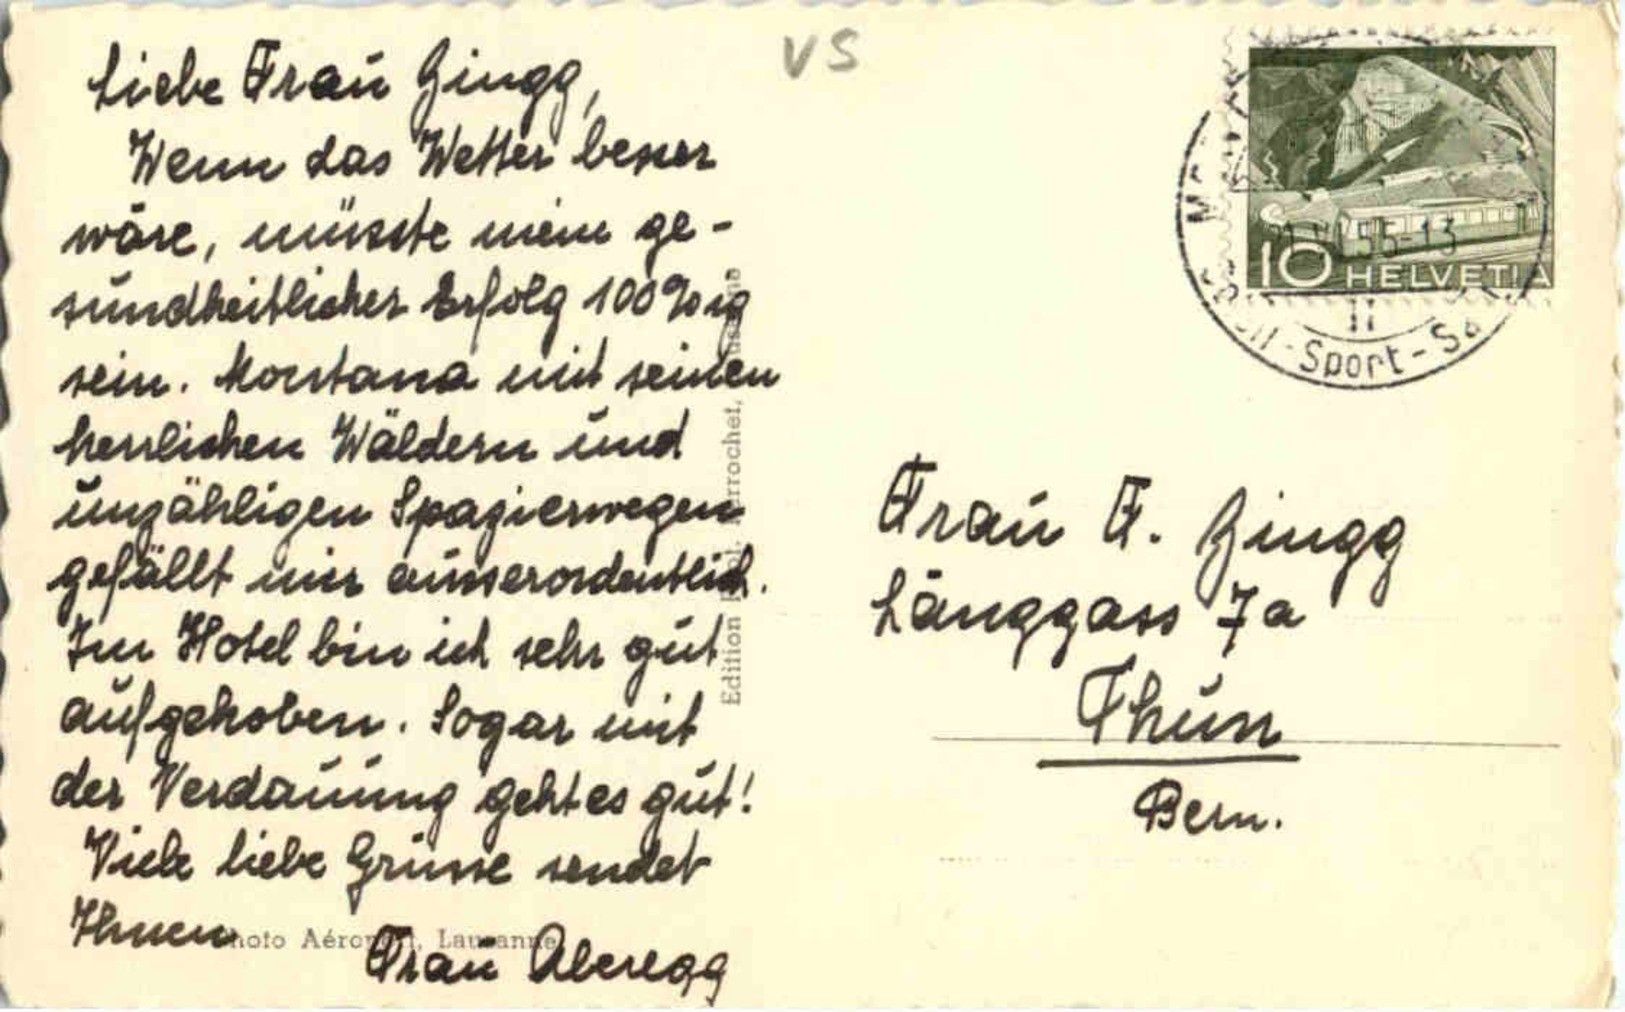 VS
Liebe Frau Gingg,
Wenn das Wetter besser
wäre, müsste mein ge-
sundheitlicher Erfolg 100%ig
sein. Montana mit seinen
herrlichen Wäldern und
unzähligen Spazierwegen
gefällt mir ausserordentlich.
Im Hotel bin ich sehr gut
aufgehoben. Sogar mit
der Verdauung geht es gut!
Viele liebe Grüsse sendet
Ihnen
Frau Aberegg
Edition
Perrochet,
Photo Aéroport, Lausanne
10 HELVETIA
55-13
-Sport-
Frau F. Gingg
Länggass 7a
Thun
Bern.